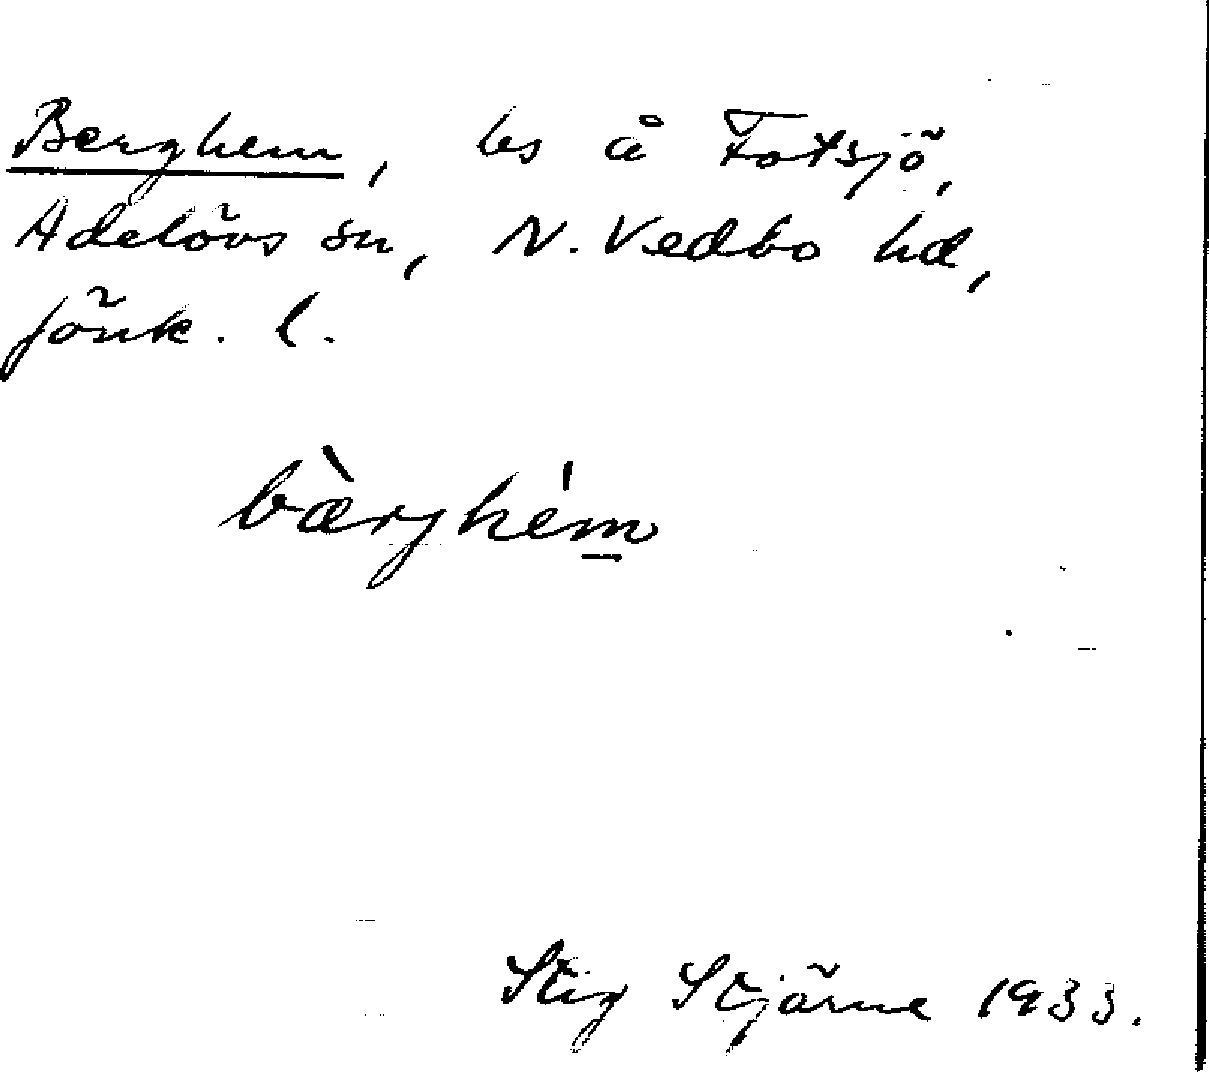 Berghem, ls å Fotsjö,
Adelövs sn, N. Vedbo hd,
Jönk. l.
bærjhem
Stig Stjärne 1933.